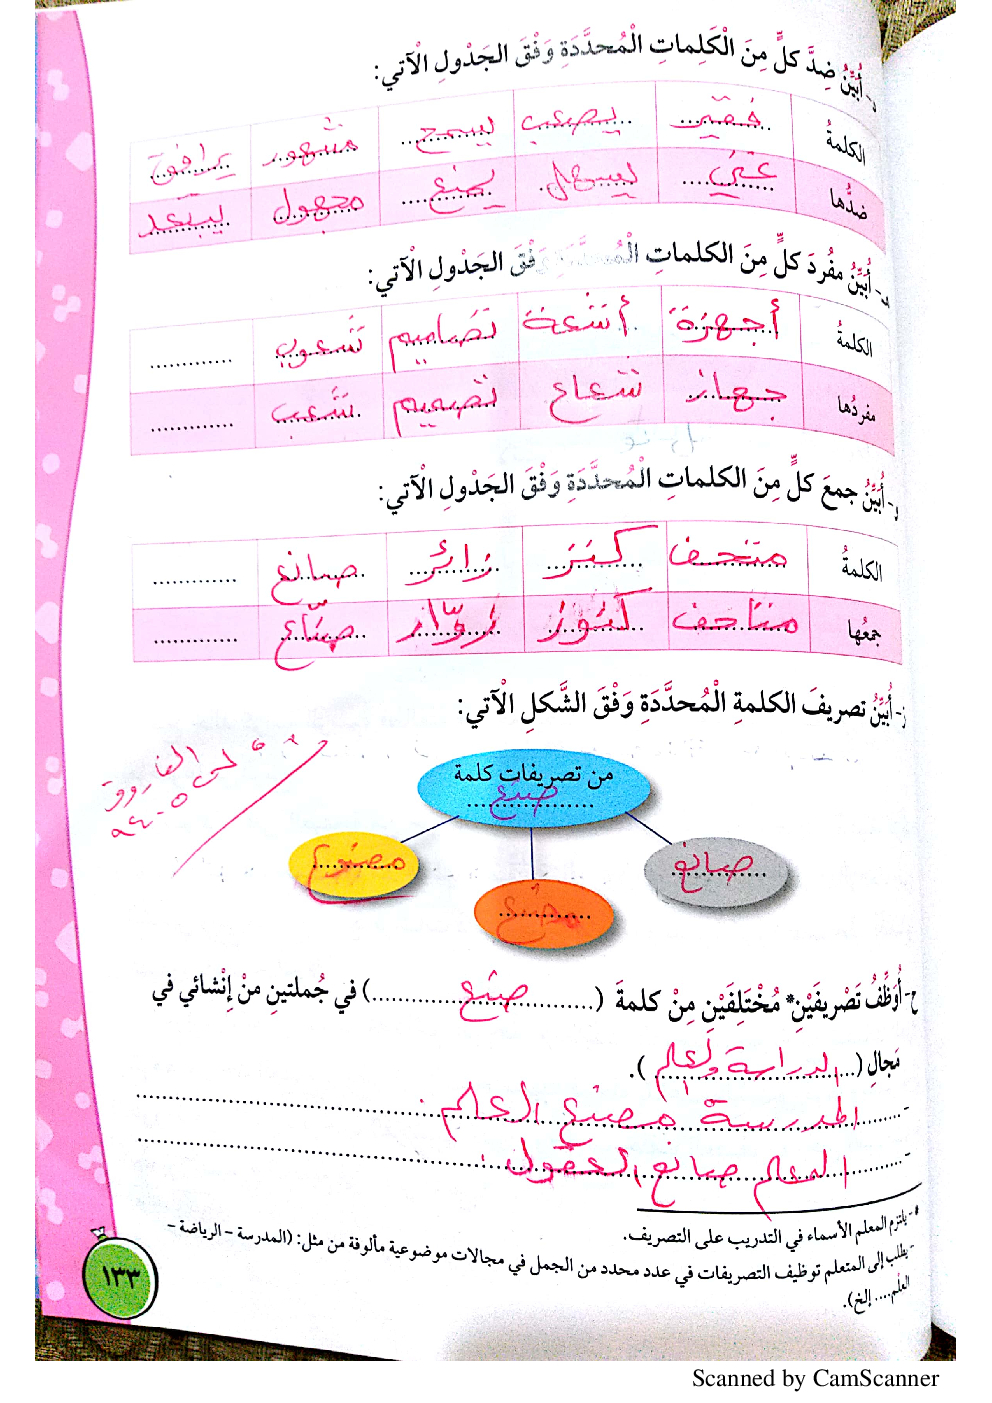 د- أُبَيِّنُ ضِدَّ كلٍّ مِنَ الْكَلِماتِ الْمُحدَّدَةِ وَفْقَ الجَدْولِ الْآتي:
الكلمةُ فقير يصعب يسمح مشهور يرافق
ضدُّها غني يسهل يمنع مجهول يبتعد
هـ- أُبَيِّنُ مفْردَ كلٍّ مِنَ الكلماتِ الْمُحدَّدَةِ وَفْقَ الجَدْولِ الْآتي:
الكلمةُ أجهزة أشعة تصاميم شعوب
مفردُها جهاز شعاع تصميم شعب
و- أُبَيِّنُ جمعَ كلٍّ مِنَ الكلماتِ الْمُحدَّدَةِ وَفْقَ الجَدْولِ الْآتي:
الكلمةُ متحف كنز زائر صانع
جمعُها متاحف كنوز زوّار صنّاع
ز- أُبَيِّنُ تصريفَ الكلمةِ الْمُحدَّدَةِ وَفْقَ الشَّكلِ الْآتي:
من تصريفات كلمة
صنع
صانع
مصنع
مصنوع
الفاروق
ح- أُوَظِّفُ تَصْريفَيْنِ* مُخْتَلِفَيْنِ مِنْ كلمةَ (صنع) في جُملتينِ منْ إنْشائي في
مَجالِ (الدراسة والعلم).
- المدرسة مصنع العلم.
- المعلم صانع العقول.
* - يلتزم المعلم الأسماء في التدريب على التصريف.
- يطلب إلى المتعلم توظيف التصريفات في عدد محدد من الجمل في مجالات موضوعية مألوفة من مثل: (المدرسة - الرياضة -
العلم.... إلخ).
١٣٣
Scanned by CamScanner